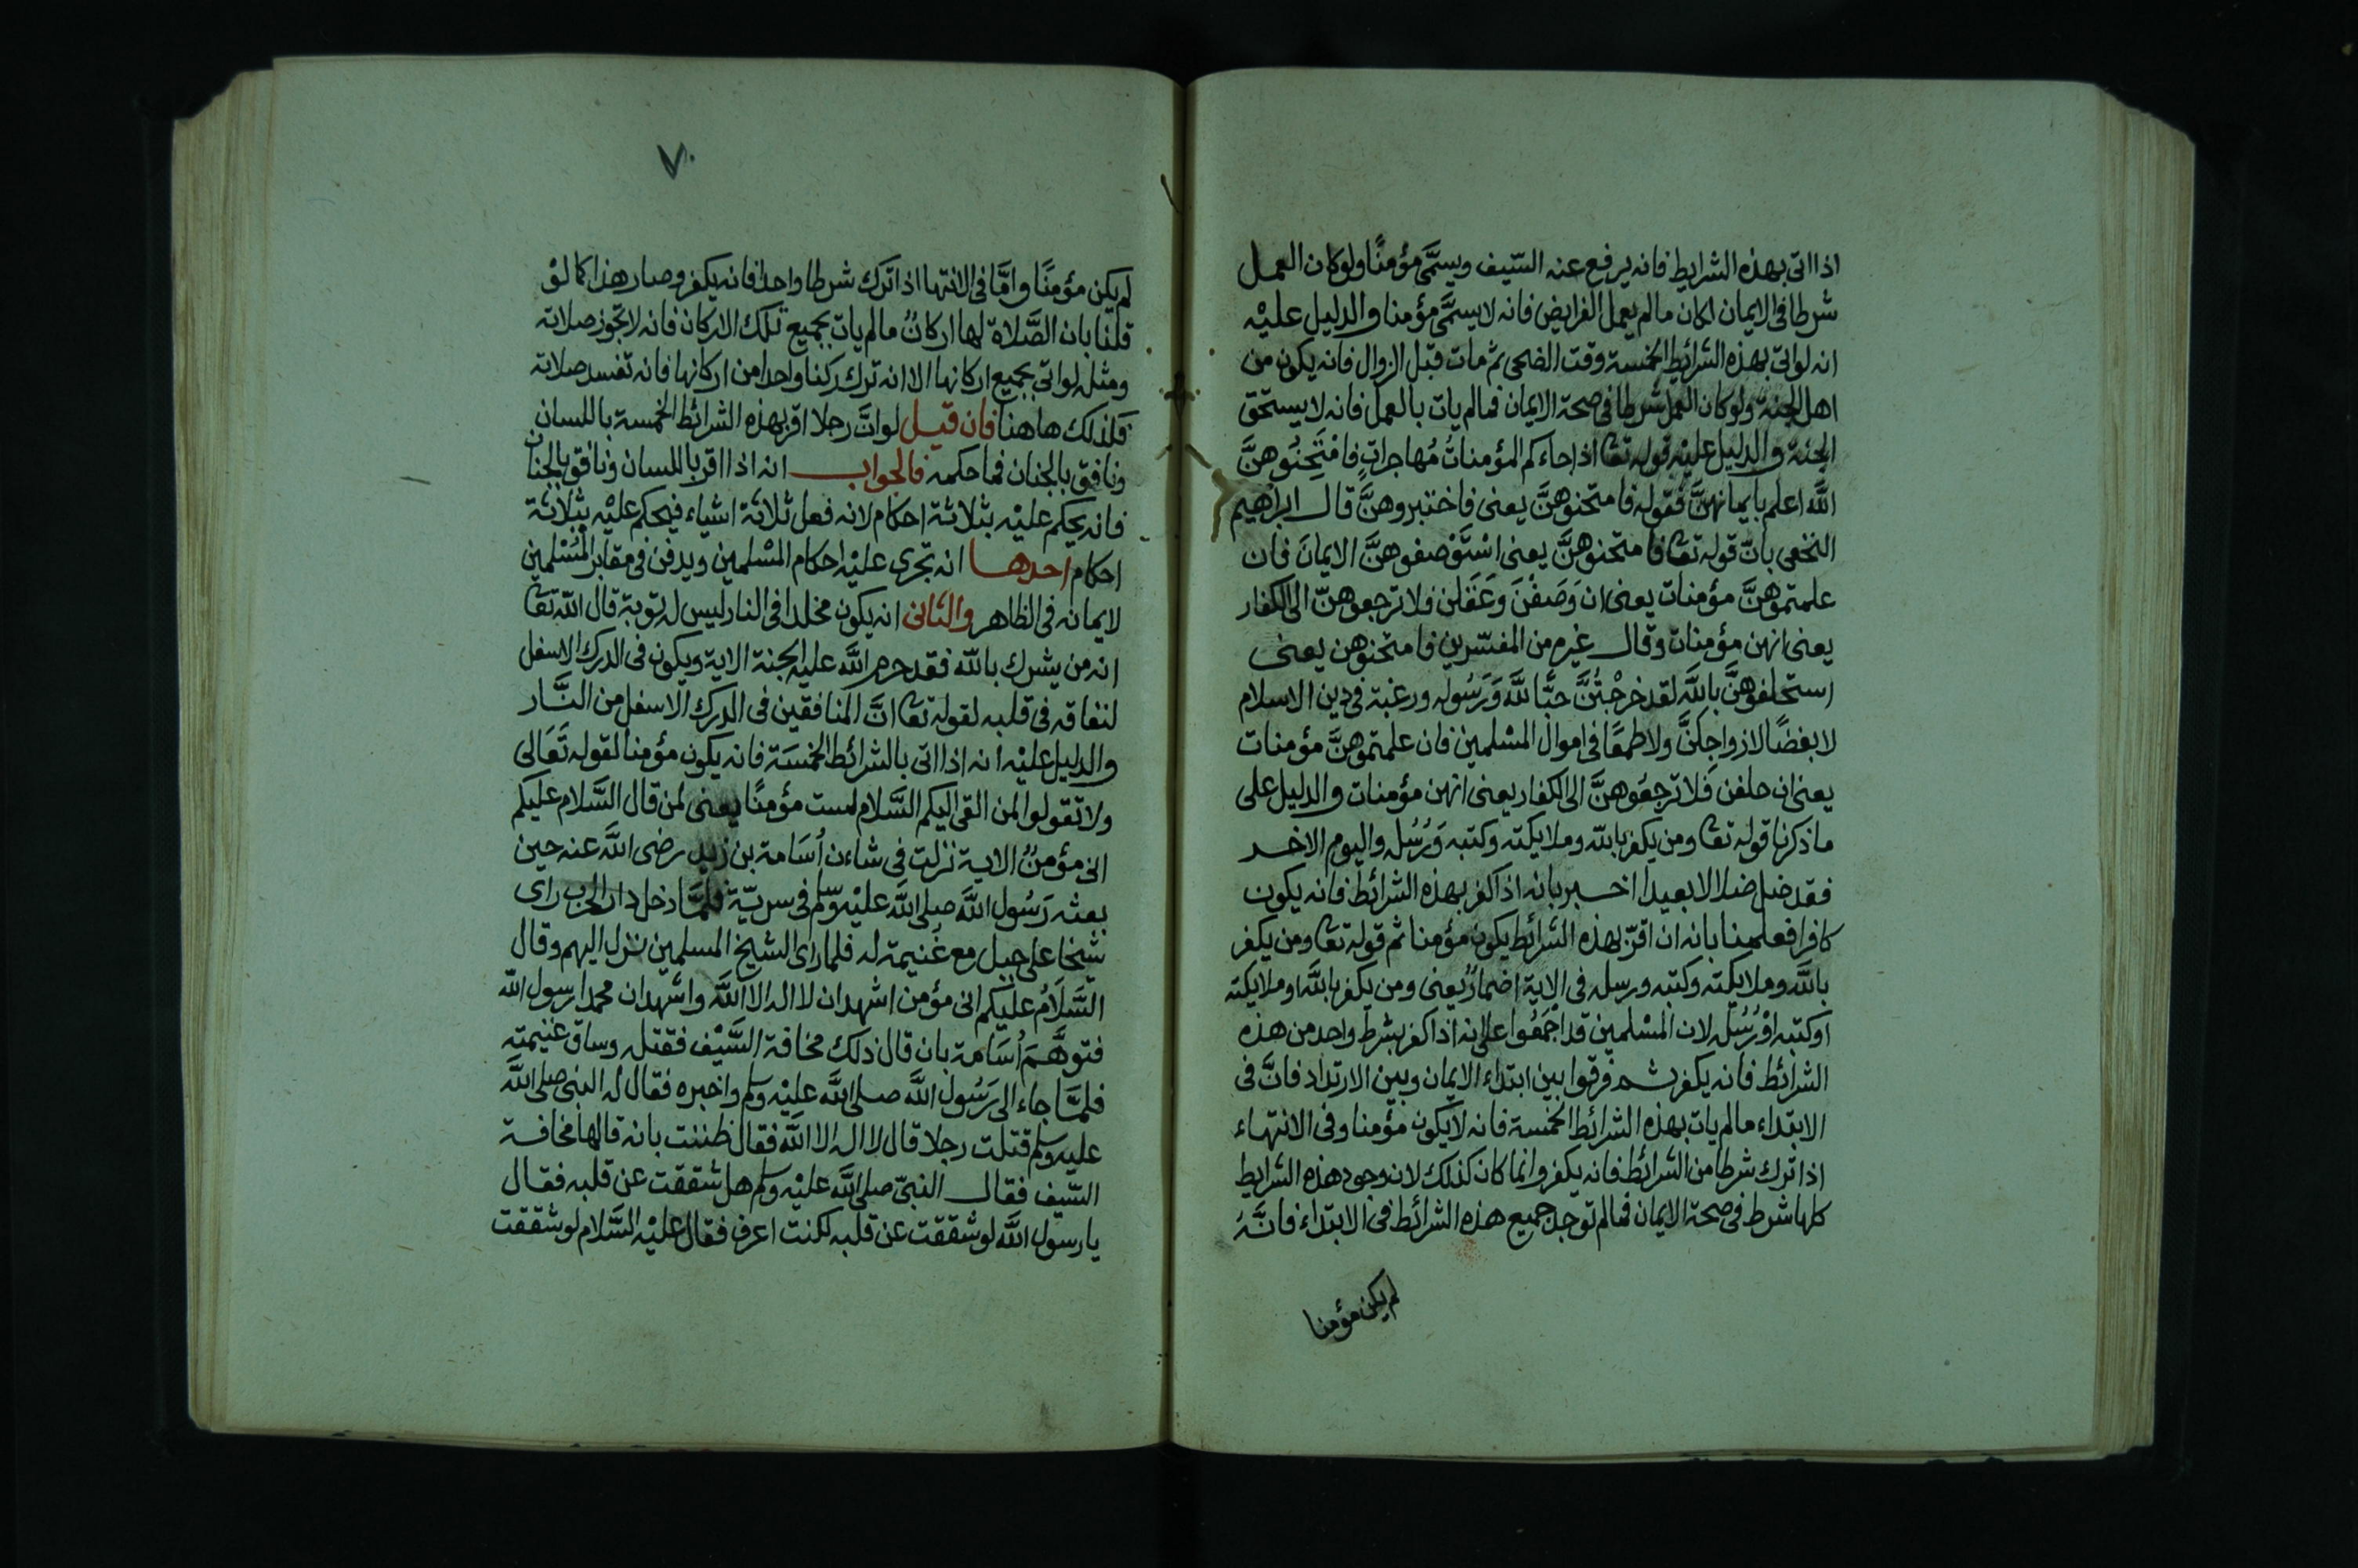 اذا اتى بهذه الشرايط فانه يرفع عنه السّيف ويسمَّى مؤمنًا ولو كان العمل
شرطا فى الايمان لكان مالم يعمل الفرايض فانه لا يسمَّى مؤمنا والدليل عليْه
انه لو اتى بهذه الشرائط الخمسة وقت الضحى ثم مات قبل الزوال فانه يكون من
اهل الجنة ولو كان العمل شرطا فى صحة الايمان فمالم يات بالعمل فانه لا يستحق
الجنة والدليل عليْه قوله تعا اذا جاءكم المؤمناتُ مُهاجراتٍ فامْتَحِنُوهنَّ
اللَّه اعلم بايمانهنَّ فقوله فامتحنوهنَّ يعنى فاختبروهنَّ قال ابراهيم
النخعى بانّ قوله تعا فامتحنوهنَّ يعنى اسْتَوْصفوهنَّ الايمانَ فان
علمتموهنَّ مؤمنات يعنى ان وَصَفْنَ وَعَقَلن فلا ترجعوهنّ الى الكفار
يعنى انهن مؤمنات وقال غيره من المفسّرين فامتحنوهن يعنى
استحلفوهنَّ باللَّه لقد خرجْتُنَّ حبًّا للَّه وَرَسُوله ورغبة فى دين الاسلام
لا بغضًا لازواجِكنَّ ولا طمعًا فى اموال المسْلمين فان علمتموهنَّ مؤمنات
يعنى ان حلفن فَلا ترجعُوهنَّ الى الكفار يعنى انهن مؤمنات والدليل على
ما ذكرنا قوله تعا ومن يكفر باللّه وملايكته وكتبه وَرُسُله واليوم الاخر
فقد ضل ضلالا بعيدا اخبر بانه اذا كفر بهذه الشرائط فانه يكون
كافرا فعلمنا بانه ان اقرّ بهذه الشرائط يكون مؤمنا ثم قوله تعا ومن يكفر
باللَّه وملايكته وكتبه ورسله فى الاية اضمارٌ يعنى ومن يكفر باللَّه او ملايكته
او كتبه اوْ رُسُله لان المسْلمين قد اجْمَعُوا على انه اذا كفر بشرط واحد من هذه
الشرائط فانه يكفر ثم فرقوا بين ابتداء الايمان وبين الارتداد فانَّ فى
الابتداء مالم يات بهذه الشرائط الخمسة فانه لا يكون مؤمنا وفى الانتهاء
اذا ترك شرطا من الشرائط فانه يكفر وانما كان كذلك لان وجود هذه الشرايط
كلها شرط فى صحة الايمان فمالم توجد جميع هذه الشرائط فى الابتداء فانَّهُ
لم يكن مؤمنا
٧٠
لم يكن مؤمنًا وامَّا فى الانتها اذا ترك شرطا واحدا فانه يكفر وصار هذا كما لوْ
قلنا بان الصَّلاة لها اركانٌ مالم يات بجميع تلك الاركان فانه لا تجوز صلاته
ومثله لو اتى بجميع اركانها الا انه ترك ركنا واحدا من اركانها فانه تفسد صلاته
فكذلك هاهنا فان قيل لو انَّ رجلا اقر بهذه الشرائط الخمسة باللسان
ونافق بالجنان فما حكمه فالجواب انه اذا اقر باللسان ونافق بالجنان
فانه يحكم عليْه بثلاثة احكام لانه فعل ثلاثة اشياء فيحكم عليْه بثلاثة
احكام احدها انه تجرى عليْه احكام المسْلمين ويدفن فى مقابر المسْلمين
لايمانه فى الظاهر والثانى انه يكون مخلدا فى النار ليس له توبة قال اللّه تعا
انه من يشرك باللّه فقد حرم اللَّه عليه الجنة الاية ويكون فى الدرك الاسفل
لنفاقه فى قلبه لقوله تعا انَّ المنافقين فى الدرك الاسفل من النَّار
والدليل عليْه انه اذا اتى بالشرائط الخمسَة فانه يكون مؤمنا لقوله تَعَالى
ولا تقولوا لمن القى اليكم السَّلام لست مؤمنًا يعنى لمن قال السَّلام عليكم
انى مؤمنٌ الاية نزلت فى شاءن اُسَامة بن زيد رضى اللَّه عنه حين
بعثه رَسُول اللَّه صلى اللَّه عليْه وسلم فى سريّة فلمَّا دخل دار الحرب راى
شيخا على جبل مع غنيمة له فلما راى الشيخ المسلمين نزل اليهم وقال
السَّلَامُ عليكم انى مؤمن اشهد ان لا اله الا اللَّه واشهد ان محمدا رسول اللّه
فتوهَّمَ اُسَامة بان قال ذلك مخافة السَّيْف فقتله وساق غنيمته
فلمَّا جاء الى رَسُول اللَّه صلى اللَّه عليْه وسلم واخبره فقال له النبى صلى اللَّه
عليه وسلم قتلت رجلا قال لا اله الا اللَّه فقال ظننت بانه قالها مخافة
السّيف فقال النبىّ صلى اللَّه عليْه وسلم هل شققت عن قلبه فقال
يا رسول اللَّه لو شققت عن قلبه لكنت اعرف فقال عليْه السَّلام لو شققت